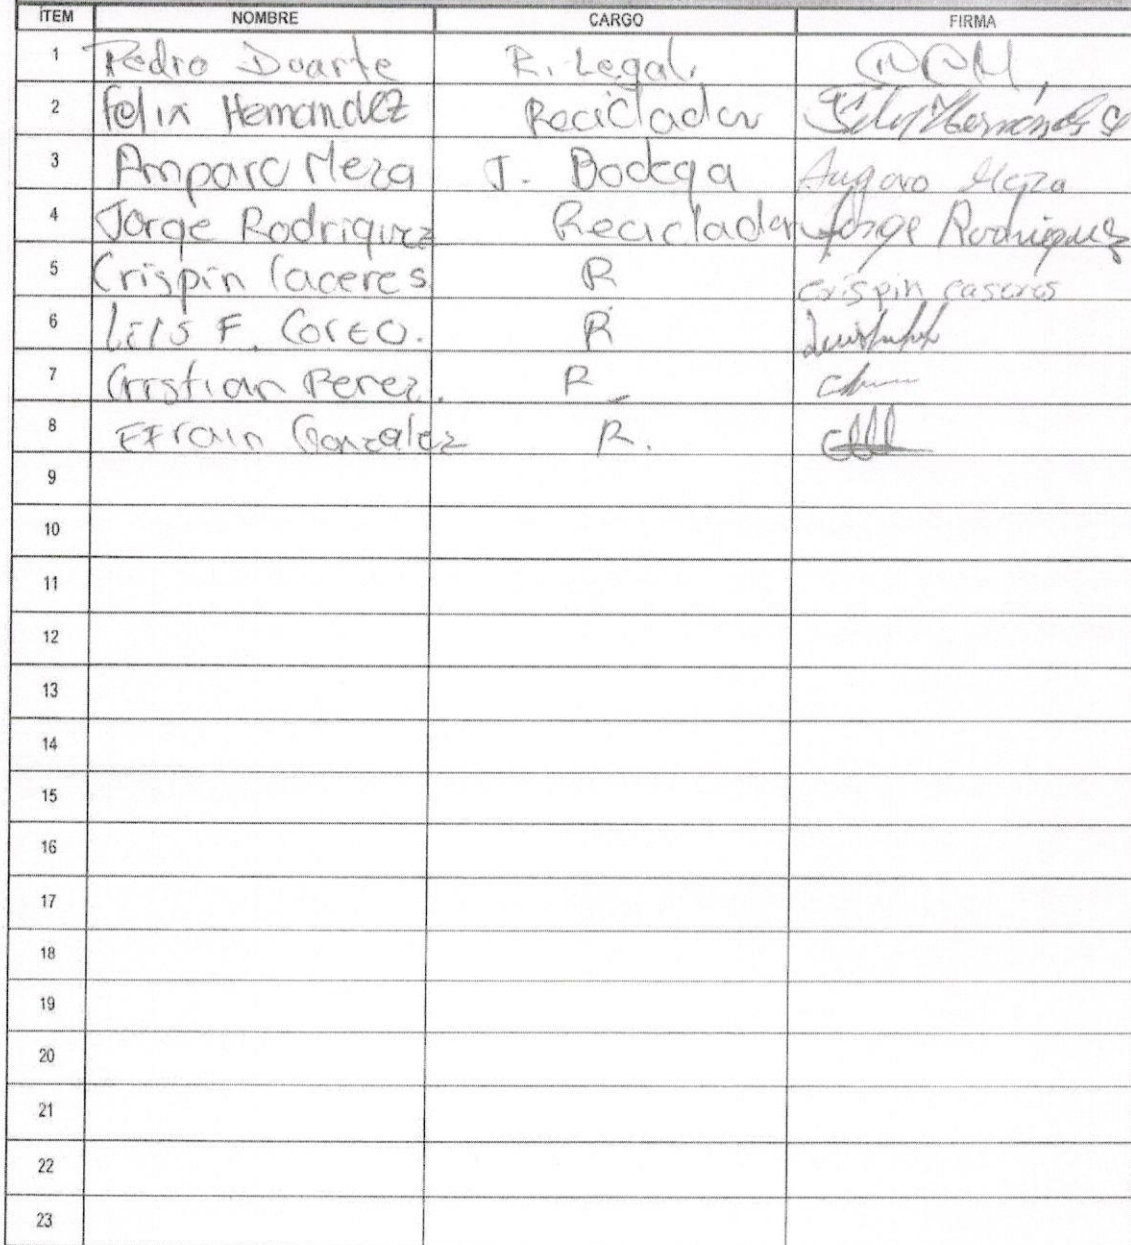 ITEM NOMBRE CARGO FIRMA
1 Pedro Duarte R. Legal.
2 Felix Hernandez Reciclador
3 Amparo Meza J. Bodega Amparo Meza
4 Jorge Rodriguez Reciclador Jorge Rodriguez
5 Crispin Caceres R crispin caseres
6 Luis F. Coreo. R
7 Cristian Perez. R
8 Efrain Gonzalez R.
9
10
11
12
13
14
15
16
17
18
19
20
21
22
23